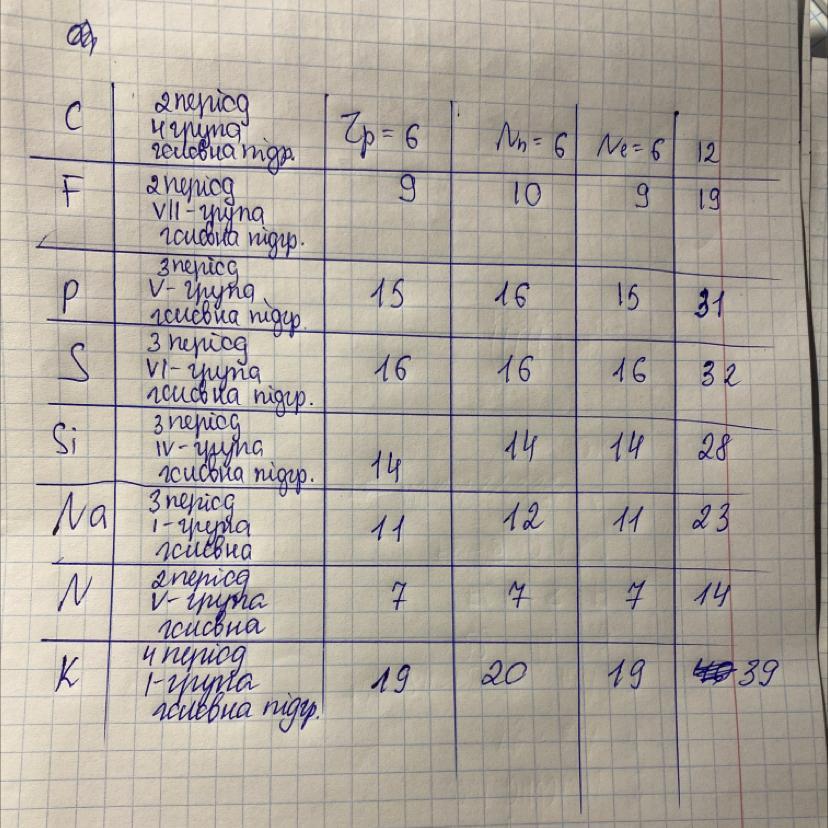 C 2 період
4 група Zp = 6 Nn = 6 Ne = 6 12
головна підгр.
F 2 період 9 10 9 19
VII-група
головна підгр.
P 3 період
V-група 15 16 15 31
головна підгр.
S 3 період
VI-група 16 16 16 32
головна підгр.
Si 3 період
IV-група 14 14 14 28
головна підгр.
Na 3 період
I-група 11 12 11 23
головна
N 2 період
V-група 7 7 7 14
головна
K 4 період
I-група 19 20 19 39
головна підгр.